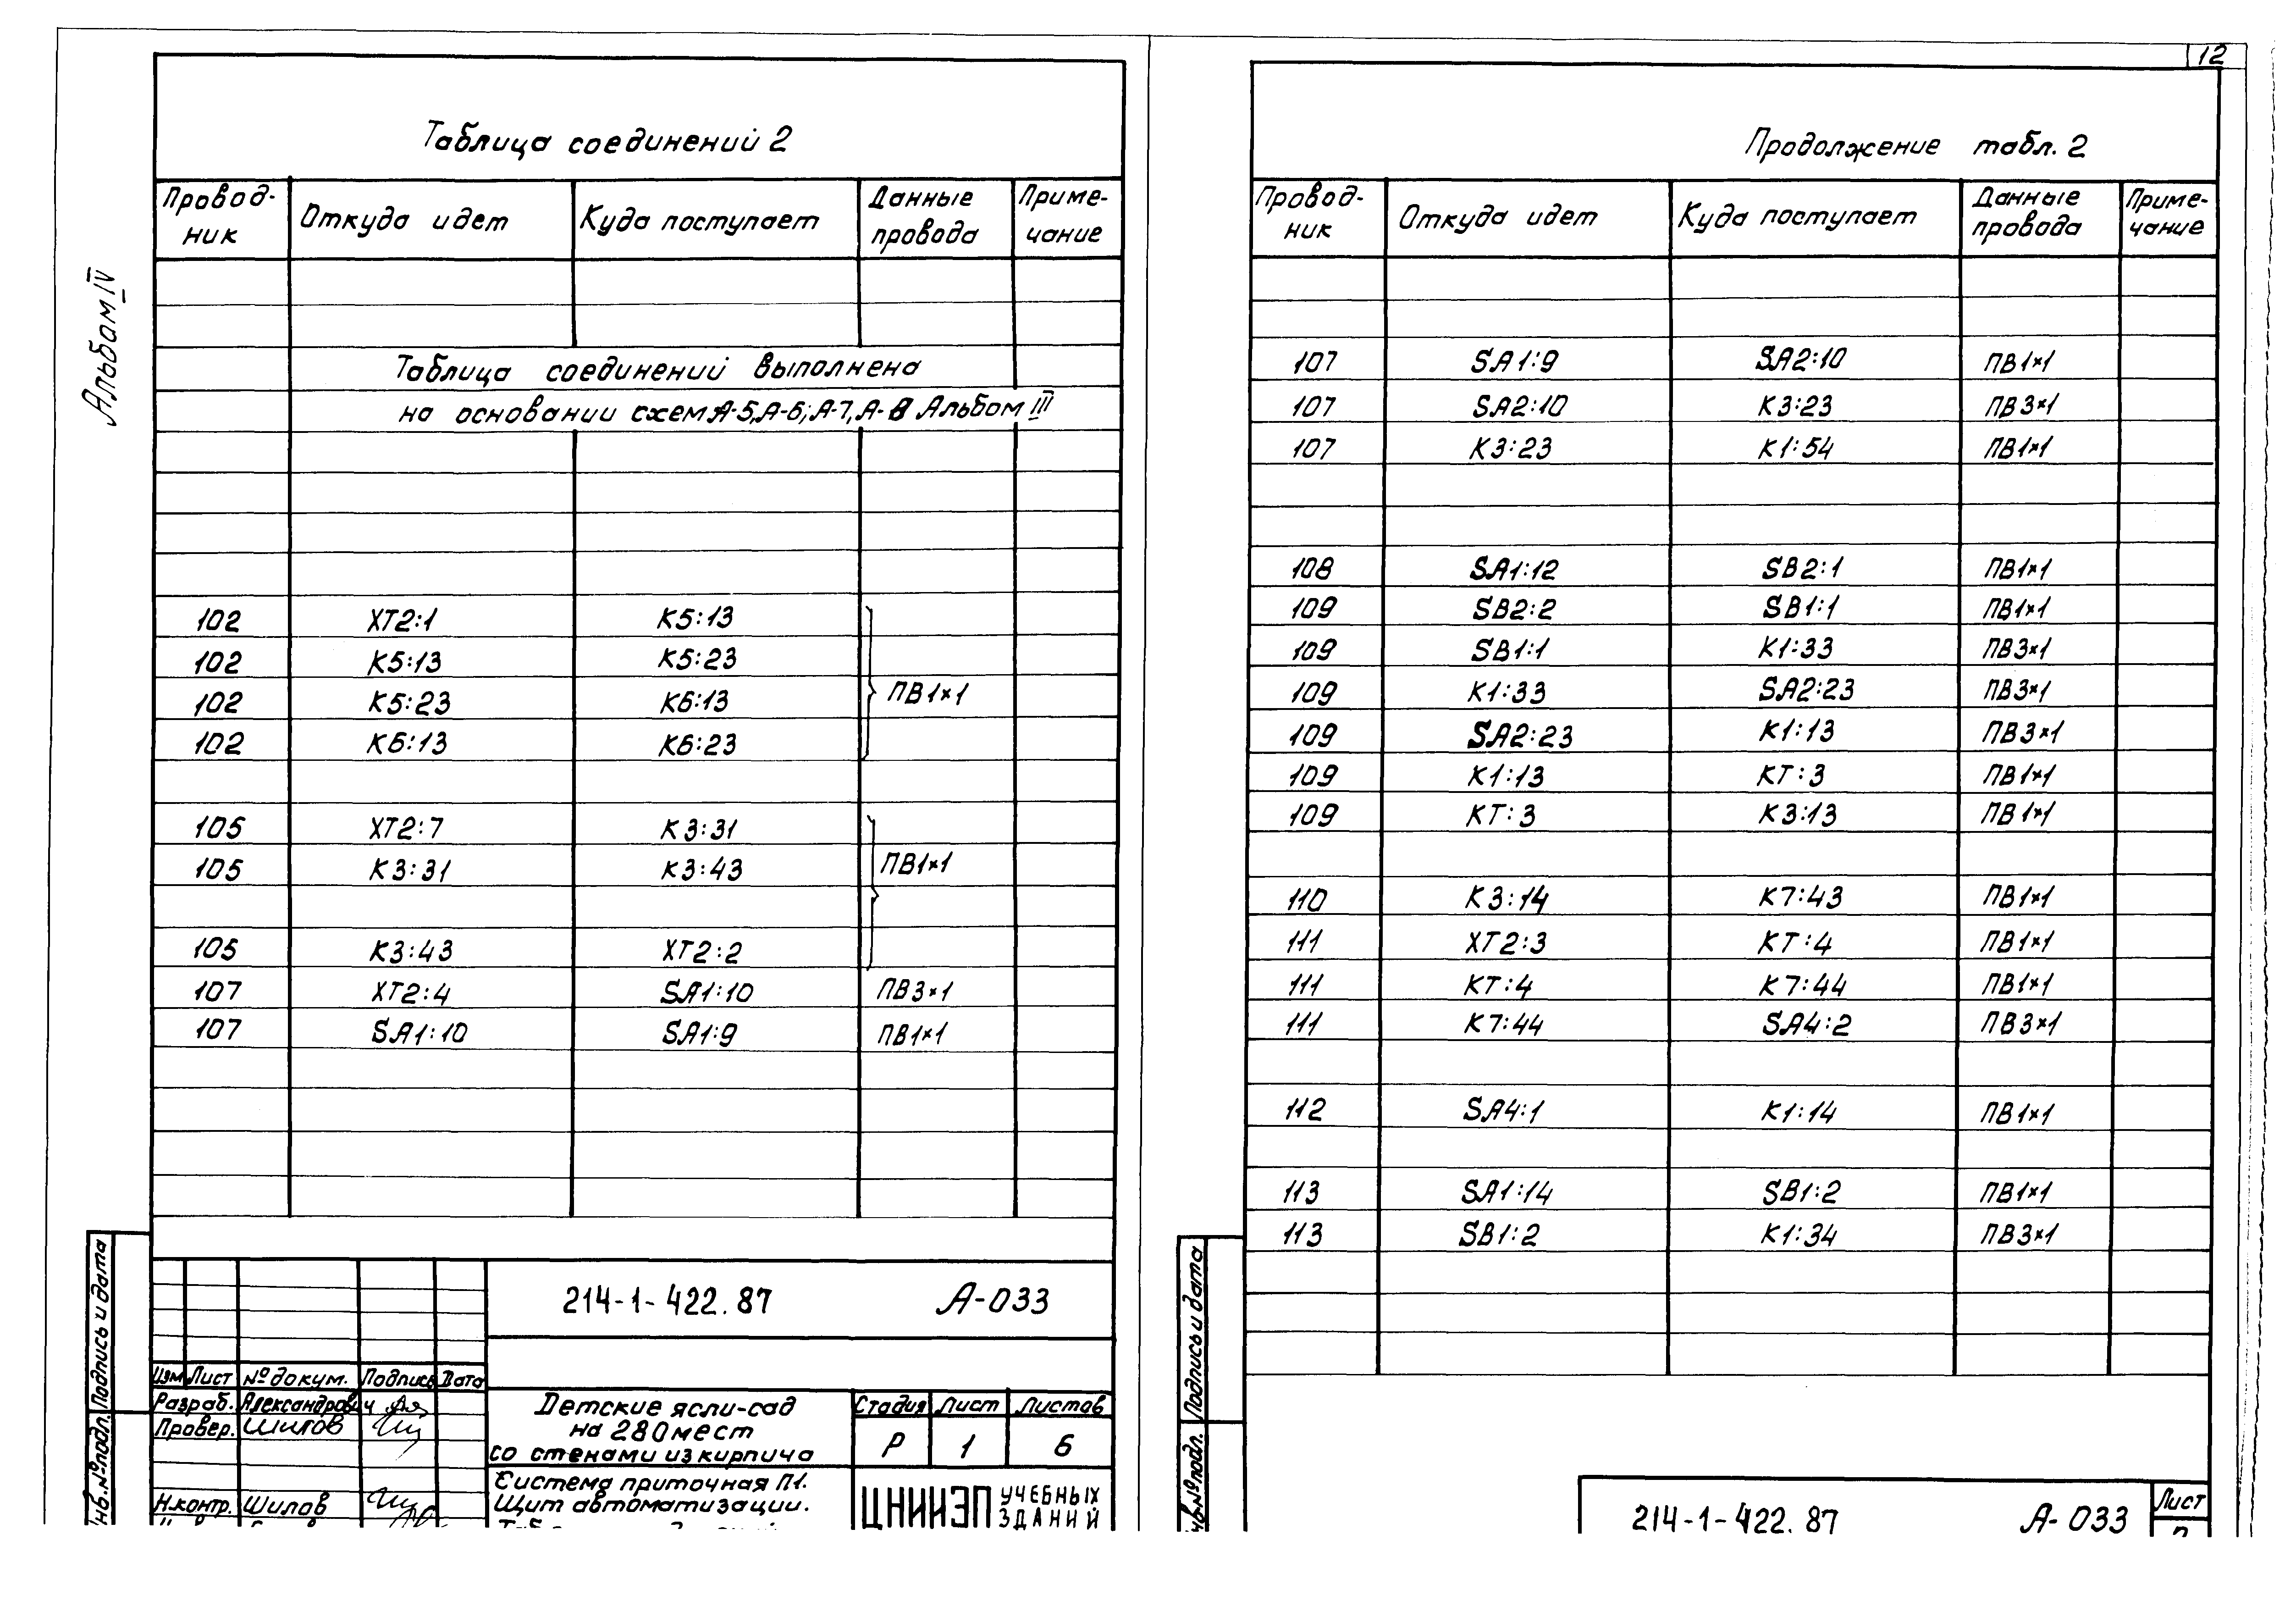 12
Альбом IV
Таблица соединений 2
Провод-ник | Откуда идет | Куда поступает | Данные провода | Приме-чание
Таблица соединений выполнена
на основании схем А-5, А-6; А-7, А-8 Альбом III
102 | ХТ2:1 | К5:13
102 | К5:13 | К5:23
102 | К5:23 | К6:13 | ПВ1×1
102 | К6:13 | К6:23
105 | ХТ2:7 | К3:31
105 | К3:31 | К3:43 | ПВ1×1
105 | К3:43 | ХТ2:2
107 | ХТ2:4 | SA1:10 | ПВ3×1
107 | SA1:10 | SA1:9 | ПВ1×1
214-1-422.87 А-033
Изм Лист № докум. Подпись Дата
Разраб. Александрович
Провер. Шилов
Н.контр. Шилов
Детские ясли-сад
на 280 мест
со стенами из кирпича
Стадия Лист Листов
Р 1 6
Система приточная П1.
Щит автоматизации.
ЦНИИЭП УЧЕБНЫХ ЗДАНИЙ
Подпись и дата
Инв.№ подл.
Продолжение табл. 2
Провод-ник | Откуда идет | Куда поступает | Данные провода | Приме-чание
107 | SA1:9 | SA2:10 | ПВ1×1
107 | SA2:10 | К3:23 | ПВ3×1
107 | К3:23 | К1:54 | ПВ1×1
108 | SA1:12 | SB2:1 | ПВ1×1
109 | SB2:2 | SB1:1 | ПВ1×1
109 | SB1:1 | К1:33 | ПВ3×1
109 | К1:33 | SA2:23 | ПВ3×1
109 | SA2:23 | К1:13 | ПВ3×1
109 | К1:13 | КТ:3 | ПВ1×1
109 | КТ:3 | К3:13 | ПВ1×1
110 | К3:14 | К7:43 | ПВ1×1
111 | ХТ2:3 | КТ:4 | ПВ1×1
111 | КТ:4 | К7:44 | ПВ1×1
111 | К7:44 | SA4:2 | ПВ3×1
112 | SA4:1 | К1:14 | ПВ1×1
113 | SA1:14 | SB1:2 | ПВ1×1
113 | SB1:2 | К1:34 | ПВ3×1
214-1-422.87 А-033
Лист
Подпись и дата
№ подл.